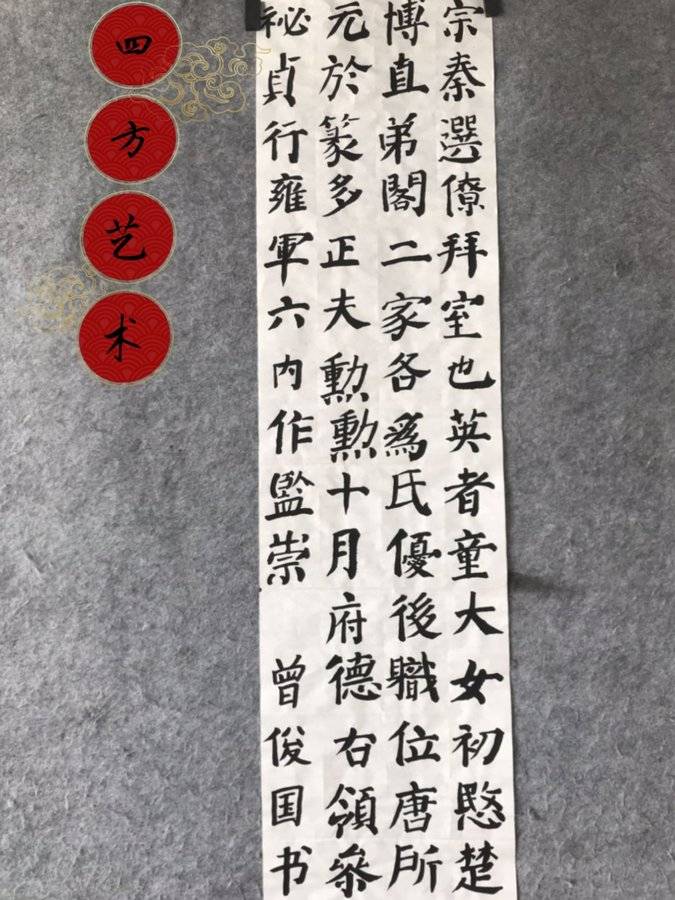 宗秦選僚拜室也英者童大女初愍楚
博直弟閣二家各為氏優後職位唐所
元於篆多正夫勲勲十月府德右領叅
祕貞行雍軍六內作監崇
曾俊国书
四方艺术